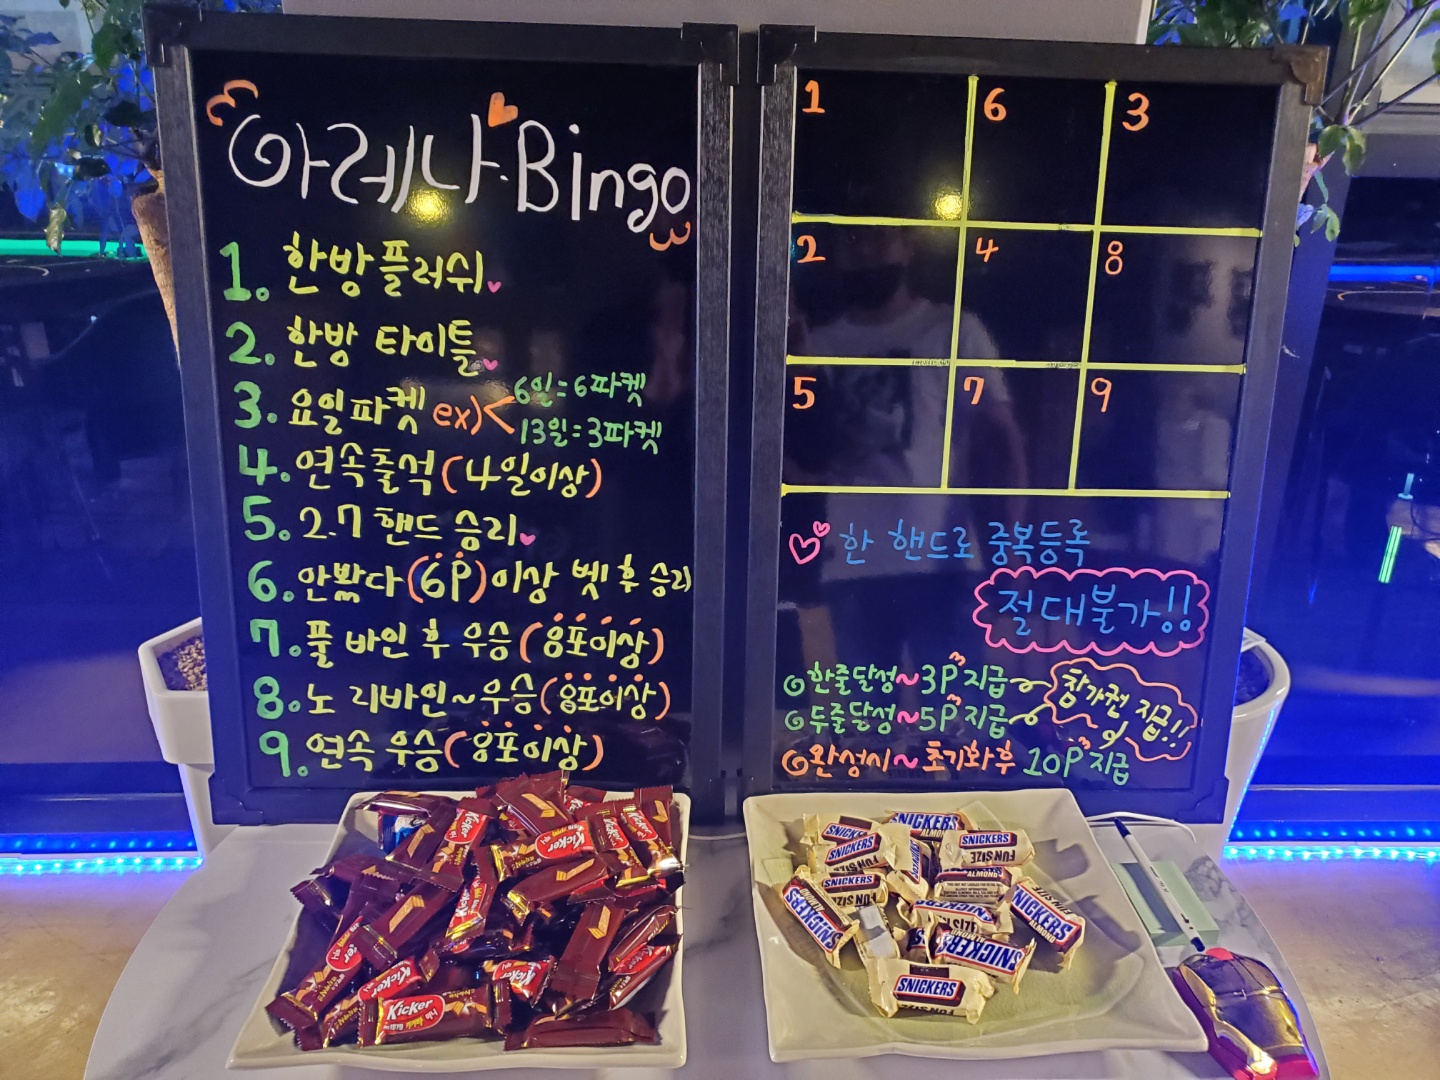 아레나 Bingo
1. 한방 플러쉬
2. 한방 타이틀
3. 요일파켓 ex) 6일=6파켓
13일=3파켓
4. 연속출석 (4일이상)
5. 2.7 핸드 승리
6. 안봤다 (6P) 이상 벳 후 승리
7. 풀 바인 후 우승 (8포이상)
8. 노 리바인~우승 (8포이상)
9. 연속 우승 (8포이상)
1 6 3
2 4 8
5 7 9
한 핸드로 중복등록
절대불가!!
한줄달성~3P 지급
두줄달성~5P 지급
참가권 지급!!
완성시~초기화후 10P 지급
Kicker
Kicker
Kicker
Kicker
Kicker
Kicker
Kicker
SNICKERS
ALMOND
SNICKERS
SNICKERS
FUN SIZE
SNICKERS
SNICKERS
SNICKERS
ALMOND
SNICKERS
SNICKERS